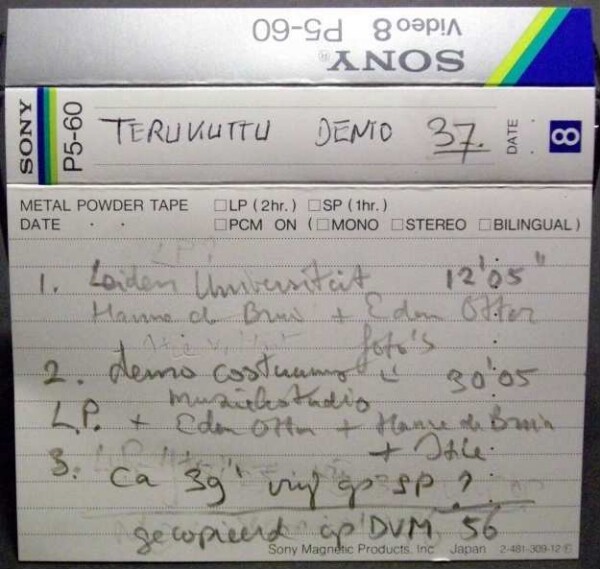 Video 8 P5-60
SONY®
SONY P5-60 TERUKUTTU DEMO 37. DATE . . 8
METAL POWDER TAPE □LP (2hr.) □SP (1hr.)
DATE . . □PCM ON (□MONO □STEREO □BILINGUAL)
LP?
1. Leiden Universiteit 12'05"
Hanne de Bruin + Edon Otter
foto's
2. demo costuums 30'05
muziekstudio
L.P. + Edon Otter + Hanne de Bruin
3. ca 39' vrij op SP ?
gecopieerd op DVM 56
Sony Magnetic Products, Inc. Japan 2-481-309-12